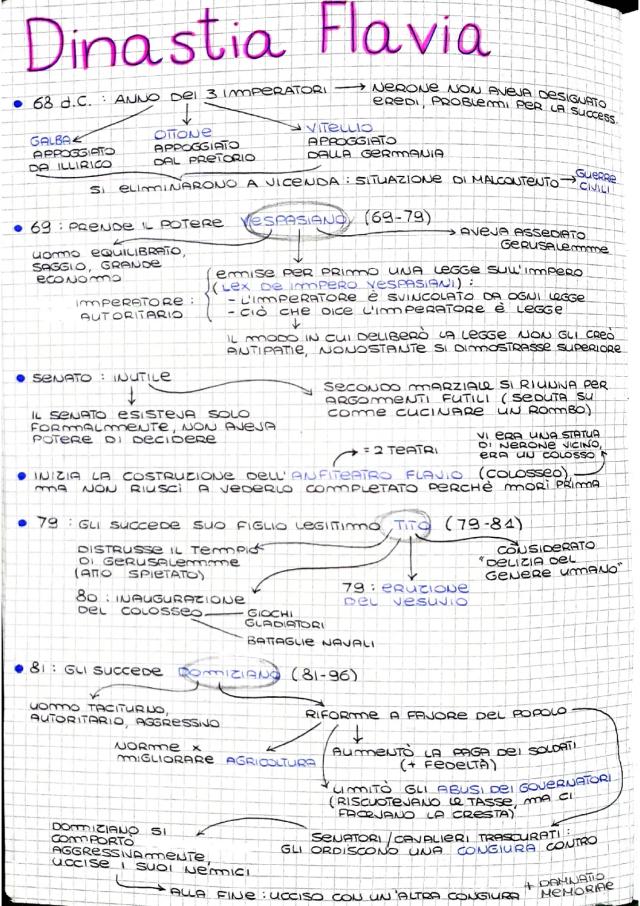 Dinastia Flavia
68 d.C. : ANNO DEI 3 IMPERATORI → NERONE NON AVEVA DESIGNATO
EREDI, PROBLEMI PER LA SUCCESS.
GALBA
APPOGGIATO
DA ILLIRICO
OTTONE
APPOGGIATO
DAL PRETORIO
VITELLIO
APPOGGIATO
DALLA GERMANIA
SI ELIMINARONO A VICENDA : SITUAZIONE DI MALCONTENTO →
GUERRE
CIVILI
69 : PRENDE IL POTERE VESPASIANO (69-79)
AVEVA ASSEDIATO
GERUSALEMME
UOMO EQUILIBRATO,
SAGGIO, GRANDE
ECONOMO
IMPERATORE :
AUTORITARIO
EMISE PER PRIMO UNA LEGGE SULL'IMPERO
(LEX DE IMPERO VESPASIANI) :
- L'IMPERATORE È SVINCOLATO DA OGNI LEGGE
- CIÒ CHE DICE L'IMPERATORE È LEGGE
IL MODO IN CUI DELIBERÒ LA LEGGE NON GLI CREÒ
ANTIPATIE, NONOSTANTE SI DIMOSTRASSE SUPERIORE
SENATO : INUTILE
SECONDO MARZIALE SI RIUNIVA PER
ARGOMENTI FUTILI (SEDUTA SU
COME CUCINARE UN ROMBO)
IL SENATO ESISTEVA SOLO
FORMALMENTE, NON AVEVA
POTERE DI DECIDERE
= 2 TEATRI
VI ERA UNA STATUA
DI NERONE VICINO,
ERA UN COLOSSO
INIZIA LA COSTRUZIONE DELL'ANFITEATRO FLAVIO (COLOSSEO)
MA NON RIUSCÌ A VEDERLO COMPLETATO PERCHÉ MORÌ PRIMA
79 : GLI SUCCEDE SUO FIGLIO LEGITTIMO TITO (79-81)
DISTRUSSE IL TEMPIO
DI GERUSALEMME
(ATTO SPIETATO)
CONSIDERATO
"DELIZIA DEL
GENERE UMANO"
79 : ERUZIONE
DEL VESUVIO
80 : INAUGURAZIONE
DEL COLOSSEO
GIOCHI
GLADIATORI
BATTAGLIE NAVALI
81 : GLI SUCCEDE DOMIZIANO (81-96)
UOMO TACITURNO,
AUTORITARIO, AGGRESSIVO
RIFORME A FAVORE DEL POPOLO
NORME X
MIGLIORARE AGRICOLTURA
AUMENTÒ LA PAGA DEI SOLDATI
(+ FEDELTÀ)
LIMITÒ GLI ABUSI DEI GOVERNATORI
(RISCUOTEVANO LE TASSE, MA CI
FACEVANO LA CRESTA)
SENATORI/CAVALIERI TRASCURATI :
GLI ORDISCONO UNA CONGIURA CONTRO
DOMIZIANO SI
COMPORTÒ
AGGRESSIVAMENTE,
UCCISE I SUOI NEMICI
ALLA FINE : UCCISO CON UN'ALTRA CONGIURA
+ DAMNATIO
MEMORIAE